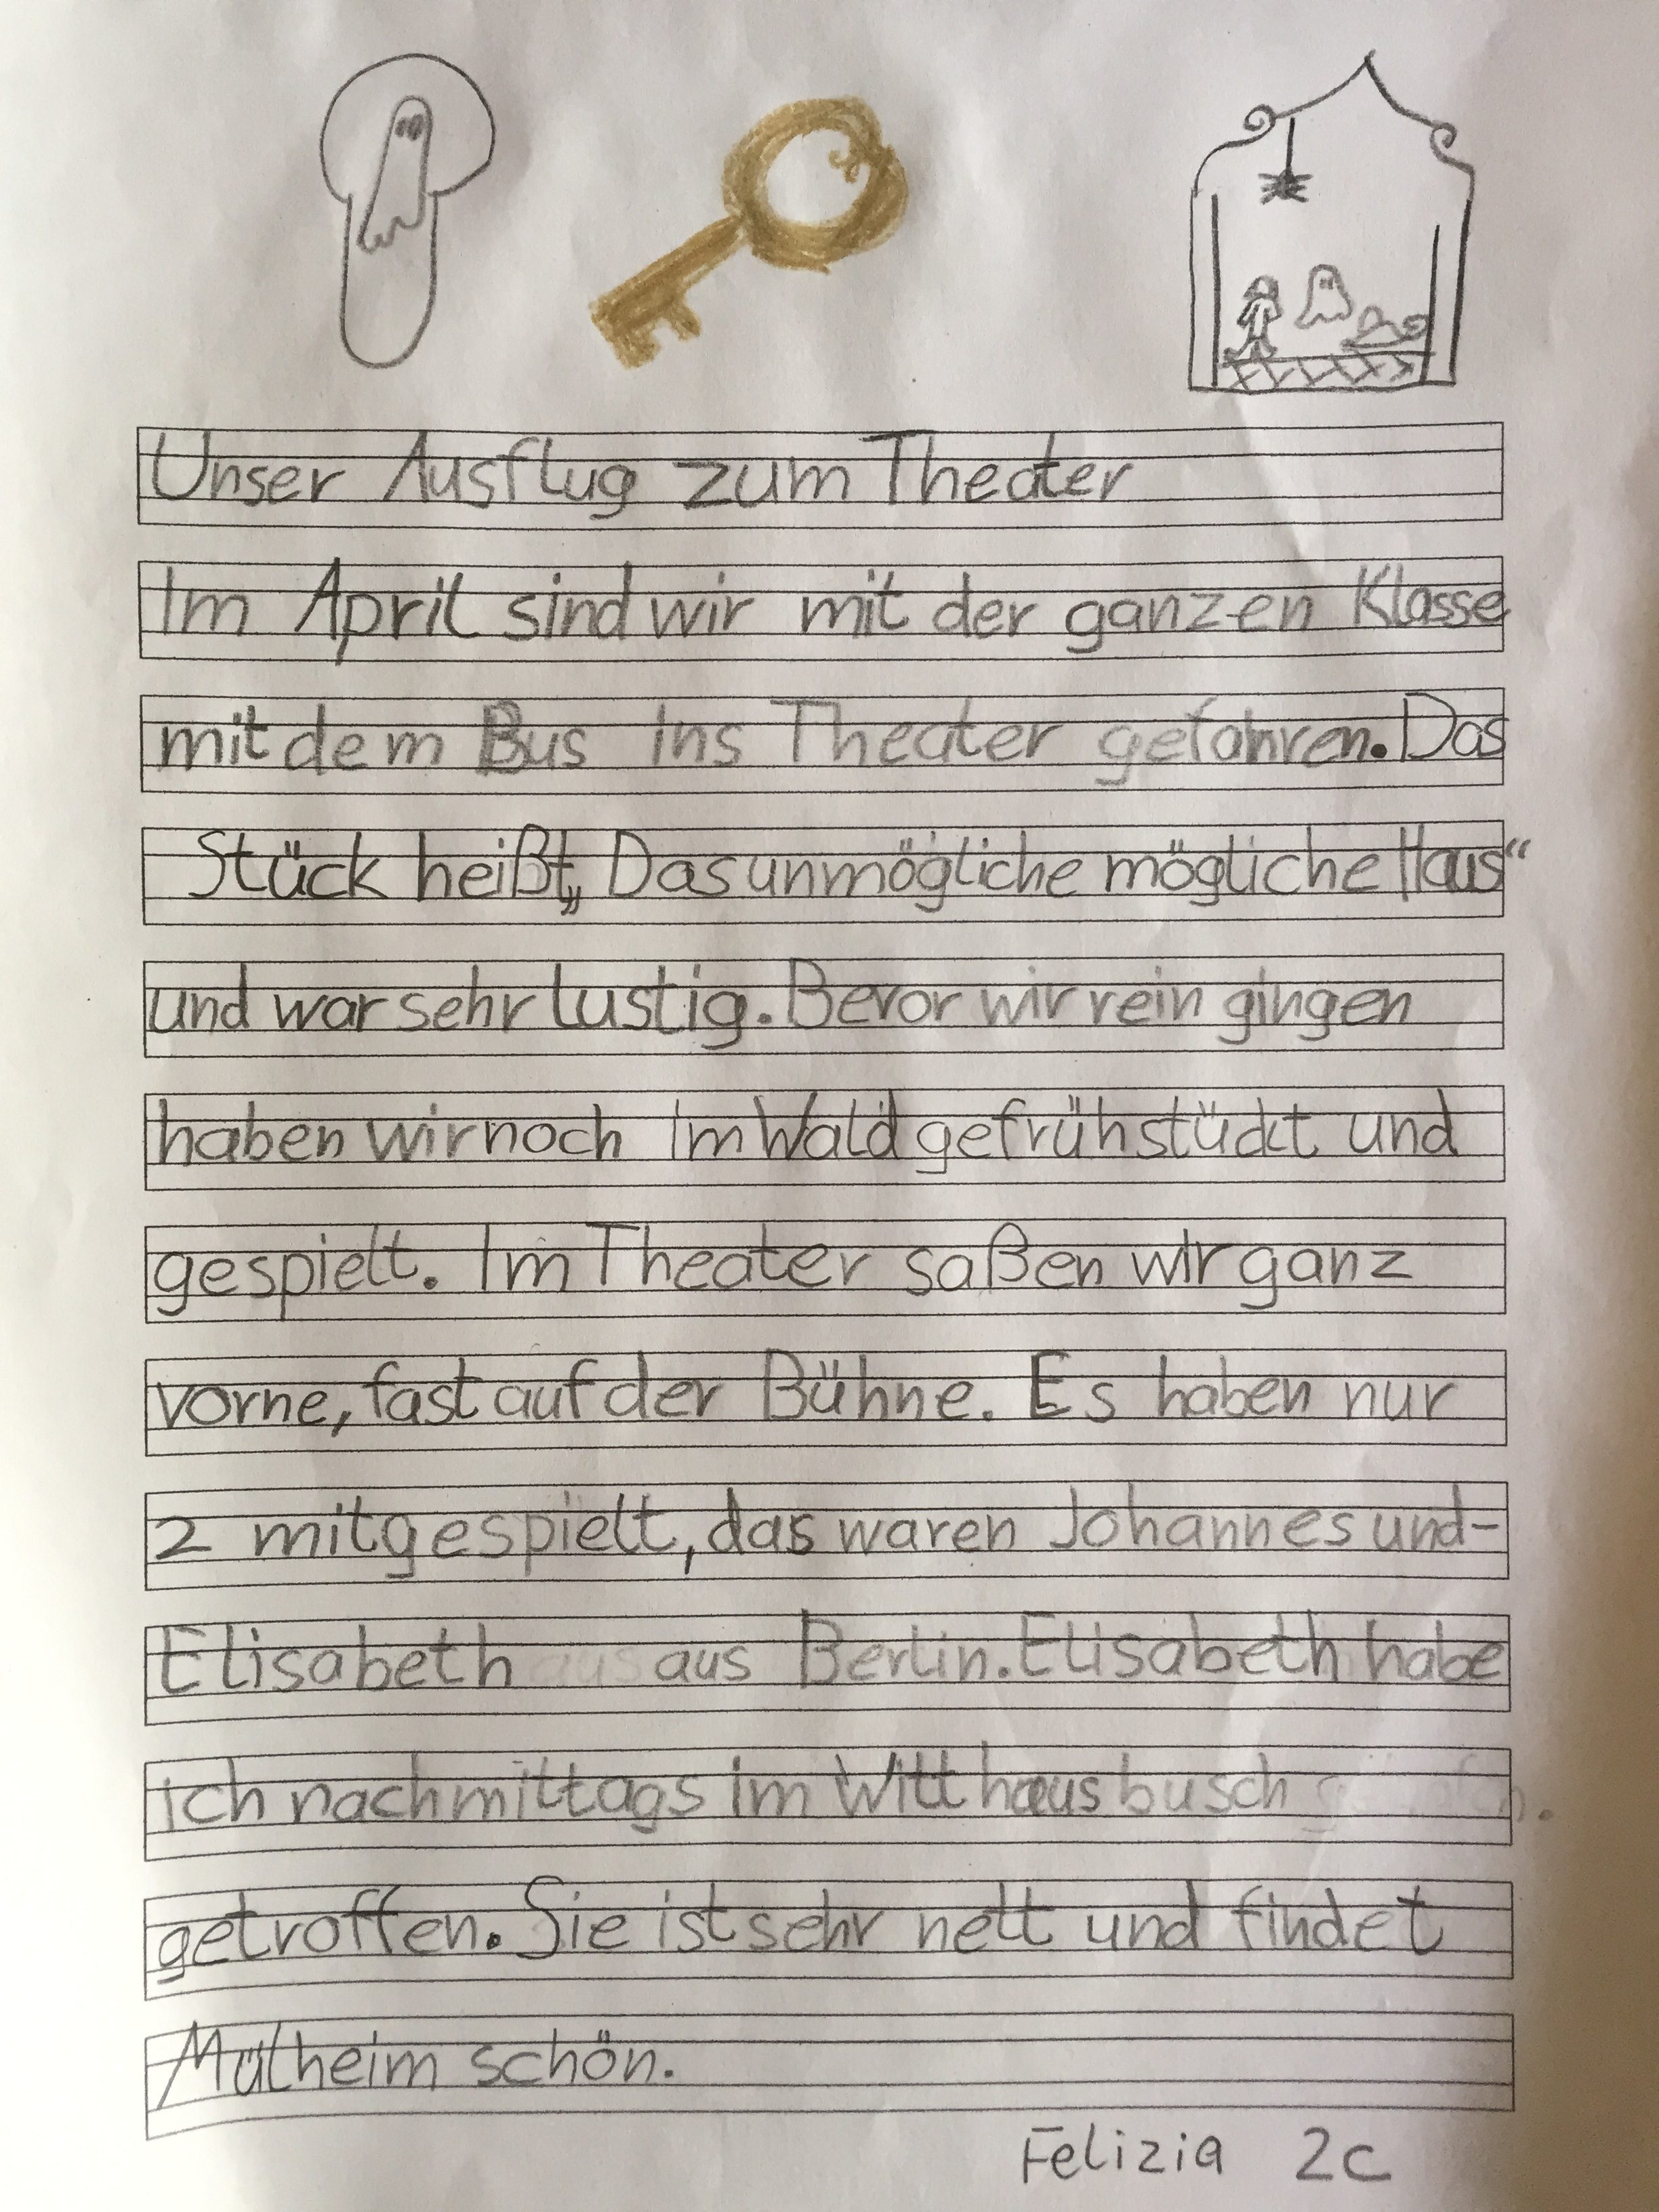 Unser Ausflug zum Theater
Im April sind wir mit der ganzen Klasse
mit dem Bus ins Theater gefahren. Das
Stück heißt „Das unmögliche mögliche Haus“
und war sehr lustig. Bevor wir rein gingen
haben wir noch im Wald gefrühstückt und
gespielt. Im Theater saßen wir ganz
vorne, fast auf der Bühne. Es haben nur
2 mitgespielt, das waren Johannes und-
Elisabeth aus Berlin. Elisabeth habe
ich nachmittags im Witthausbusch
getroffen. Sie ist sehr nett und findet
Mülheim schön.
Felizia 2c